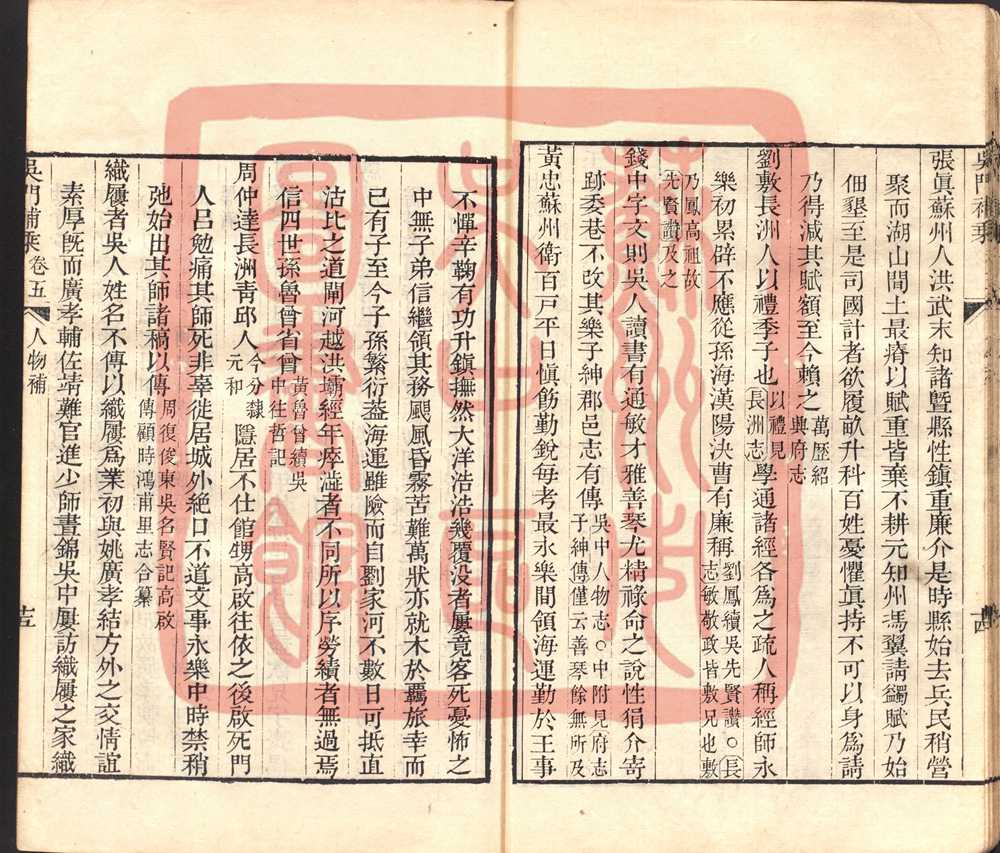 張眞蘇州人洪武末知諸暨縣性鎭重廉介是時縣始去兵民稍營
聚而湖山間土最瘠以賦重皆棄不耕元知州馮翼請蠲賦乃始
佃墾至是司國計者欲履畝升科百姓憂懼眞持不可以身爲請
乃得減其賦額至今賴之萬歷紹興府志
劉敷長洲人以禮季子也以禮見長洲志學通諸經各爲之疏人稱經師永
樂初累辟不應從孫海漢陽決曹有廉稱劉鳳續吳先賢讚○長志敏敬政皆敷兄也敷
乃鳳高祖故先賢讚及之
錢中字文則吳人讀書有通敏才雅善琴尤精祿命之說性狷介寄
跡委巷不改其樂子紳郡邑志有傳吳中人物志○中附見府志子紳傳僅云善琴餘無所及
黃忠蘇州衛百戸平日愼飭勤銳每考最永樂間領海運勤於王事
不憚辛鞠有功升鎭撫然大洋浩浩幾覆没者屢竟客死憂怖之
中無子弟信繼領其務颶風昏霧苦難萬狀亦就木於羈旅幸而
已有子至今子孫繁衍葢海運雖險而自劉家河不數日可抵直
沽比之道閘河越洪壩經年瘁澁者不同所以序勞績者無過焉
信四世孫魯曾省曾黃魯曾續吳中徃哲記
周仲達長洲靑邱人今分隸元和隱居不仕館甥高啟往依之後啟死門
人呂勉痛其師死非辜徙居城外絶口不道文事永樂中時禁稍
弛始出其師諸稿以傳周復俊東吳名賢記高啟傳顧時鴻甫里志合纂
織屨者吳人姓名不傳以織屨爲業初與姚廣孝結方外之交情誼
素厚旣而廣孝輔佐靖難官進少師晝錦吳中屢訪織屨之家織
吳門補乘卷五
人物補